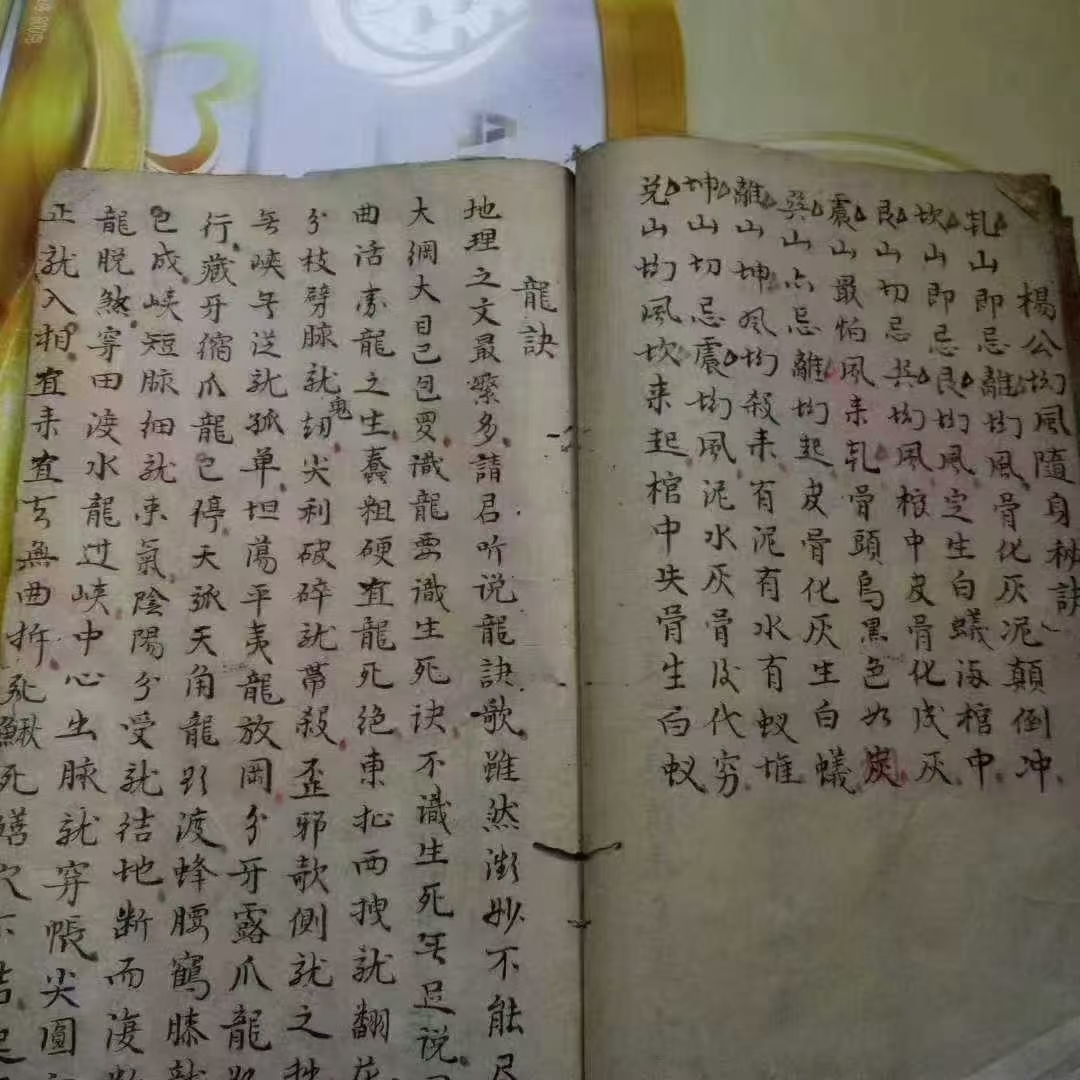 楊公坳風隨身秘訣
乹山即忌離坳風骨化灰泥顛倒冲
坎山即忌艮坳風定生白蟻海棺中
艮山切忌巽坳風棺中皮骨化成灰
震山最怕風来乹骨頭烏黑色如炭
巽山亦忌離坳起皮骨化灰生白蟻
離山坤風坳殺来有泥有水有蚁堆
坤山切忌震坳風泥水灰骨及代穷
兑山坳風坎来起棺中失骨生白蚁
龍訣
地理之文最繁多請君听说龍訣歌雖然微妙不能尽
大綱大目已包罗識龍要識生死诀不識生死旡足说
曲活柔龍之生蠢粗硬直龍死绝東扯西拽就翻花
分枝劈脉就刼鬼尖利破碎就帶殺歪邪欹側就之
旡峡旡送就孤单坦蕩平夷龍放岡分牙露爪龍
行藏牙缩爪龍已停天弧天角龍欲渡蜂腰鶴膝就
包成峡短脉细就束氣陰陽分受就结地断而復断
龍脱煞穿田渡水龍过峡中心出脉就穿帳尖圓
正就入相直来直去無曲折死鰍死鱔穴不结起